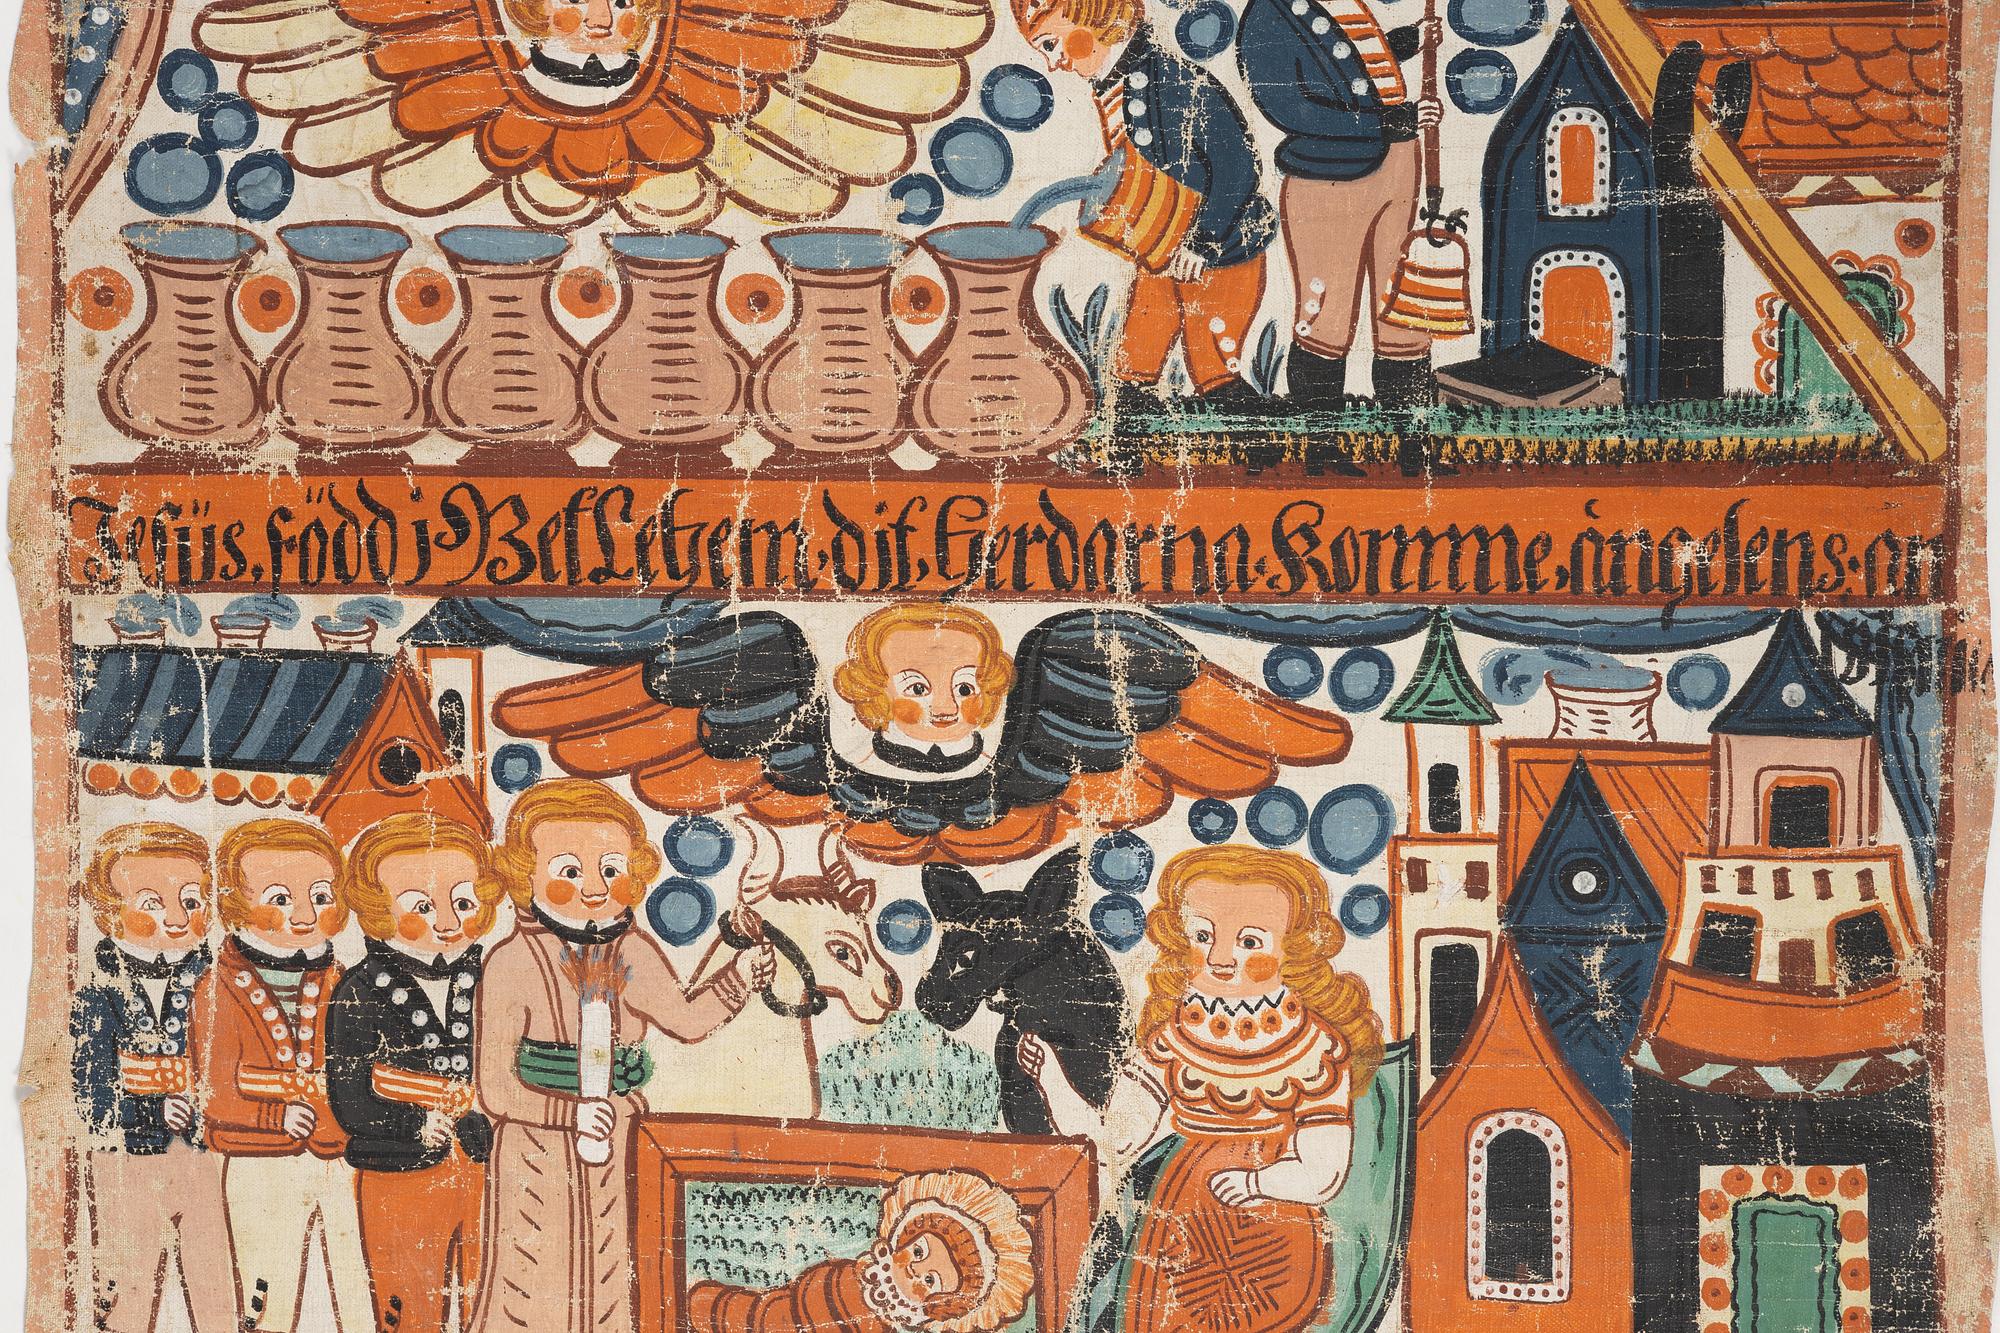 Jesüs, född j BetLehem, dit, herdarna. Komme, ängelens. an